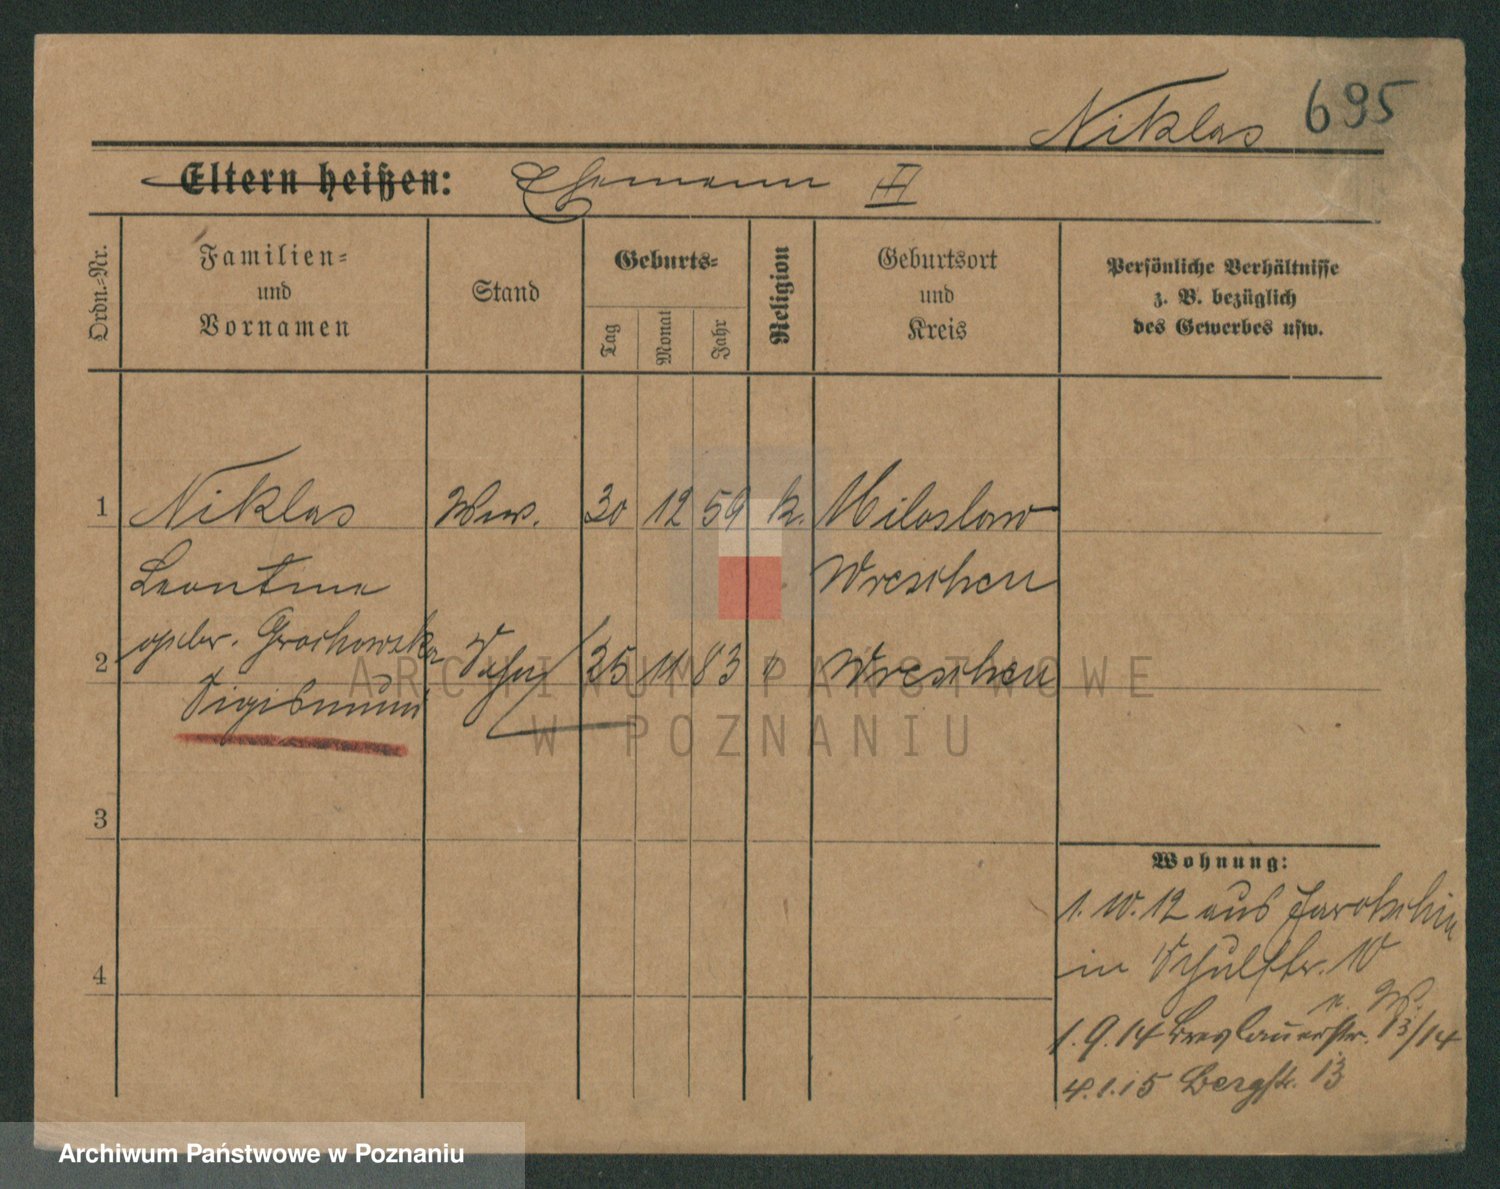 Niklas 695
Eltern heißen: Ehemann II
Ordn.-Nr.
Familien-
und
Vornamen
Stand
Geburts-
Tag
Monat
Jahr
Religion
Geburtsort
und
Kreis
Persönliche Verhältnisse
z. B. bezüglich
des Gewerbes usw.
1 Niklas Ww. 30 12 59 k. Miloslaw
Leontine Wreschen
geb. Grochowska
2 Sohn 25 11 83 Wreschen
Sigismund
3
4
Wohnung:
1.10.12 aus Jarotschin
in Schulstr. 10
n. W.
1.9.14 Breslauerstr. 13/14
4.1.15 Bergstr. 13
ARCHIWUM PAŃSTWOWE
W POZNANIU
Archiwum Państwowe w Poznaniu